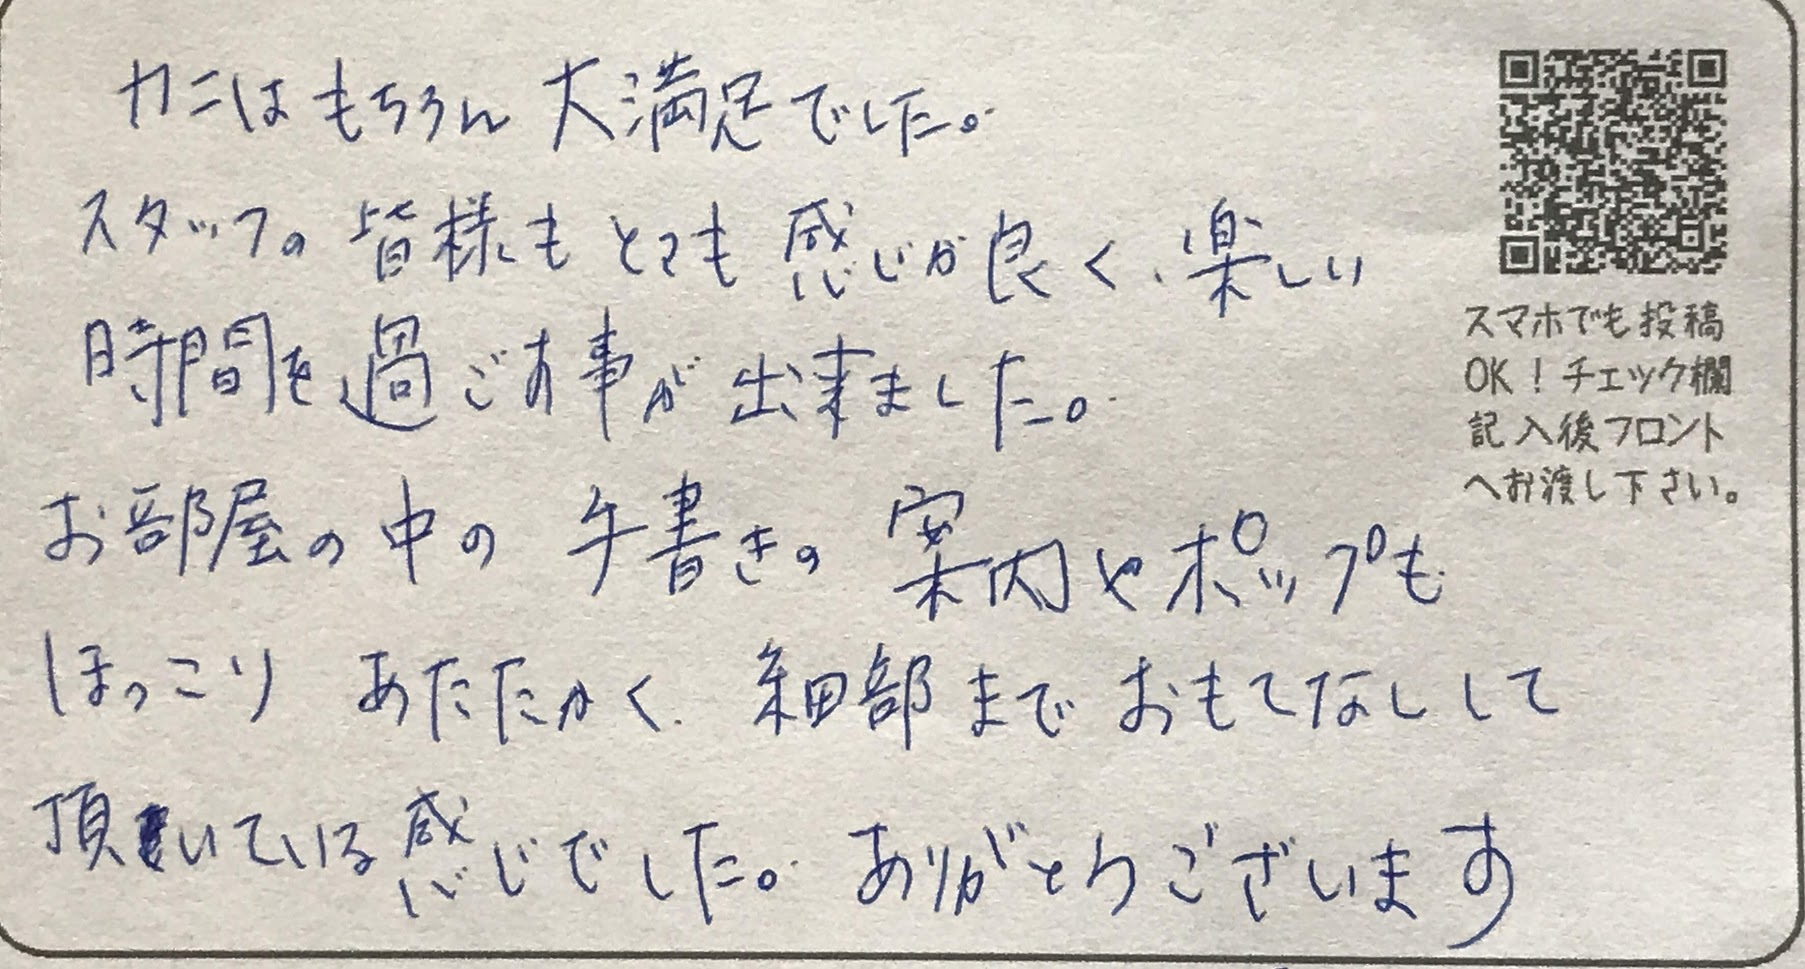 カニはもちろん大満足でした。
スタッフの皆様もとても感じが良く、楽しい
時間を過ごす事が出来ました。
お部屋の中の手書きの案内やポップも
ほっこりあたたかく、細部までおもてなしして
頂いている感じでした。ありがとうございます
スマホでも投稿
OK！チェック欄
記入後フロント
へお渡し下さい。